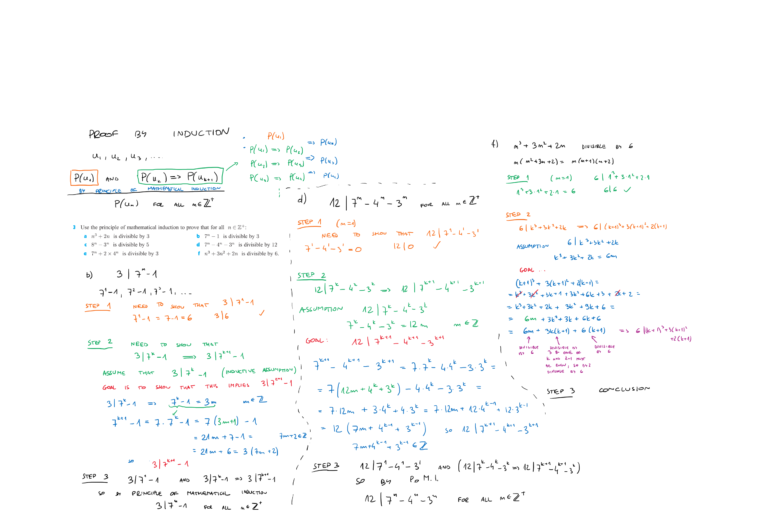 PROOF BY INDUCTION
u₁, u₂, u₃, ...
P(u₁) AND P(uₖ) => P(uₖ₊₁)
BY PRINCIPLE OF MATHEMATICAL INDUCTION
P(uₙ) FOR ALL n∈ℤ⁺
P(u₁)
P(u₁) => P(u₂) => P(u₂)
P(u₂) => P(u₃) => P(u₃)
P(u₃) => P(u₄) => P(u₄)
3 Use the principle of mathematical induction to prove that for all n ∈ ℤ⁺:
a n³ + 2n is divisible by 3
b 7ⁿ − 1 is divisible by 3
c 8ⁿ − 3ⁿ is divisible by 5
d 7ⁿ − 4ⁿ − 3ⁿ is divisible by 12
e 7ⁿ + 2 × 4ⁿ is divisible by 3
f n³ + 3n² + 2n is divisible by 6.
b) 3 | 7ⁿ−1
7¹−1, 7²−1, 7³−1, ...
STEP 1 NEED TO SHOW THAT 3 | 7¹−1
7¹−1 = 7−1 = 6 3|6 ✓
STEP 2 NEED TO SHOW THAT
3 | 7ᵏ−1 => 3 | 7ᵏ⁺¹−1
ASSUME THAT 3 | 7ᵏ−1 (INDUCTIVE ASSUMPTION)
GOAL IS TO SHOW THAT THIS IMPLIES 3|7ᵏ⁺¹−1
3 | 7ᵏ−1 => 7ᵏ−1 = 3m m∈ℤ
7ᵏ⁺¹−1 = 7·7ᵏ−1 = 7(3m+1) − 1
= 21m + 7−1 = 7m+2∈ℤ
= 21m + 6 = 3(7m+2)
so 3 | 7ᵏ⁺¹−1
STEP 3 3 | 7¹−1 AND 3|7ᵏ−1 => 3 | 7ᵏ⁺¹−1
SO BY PRINCIPLE OF MATHEMATICAL INDUCTION
3 | 7ⁿ−1 FOR ALL n∈ℤ⁺
d) 12 | 7ⁿ−4ⁿ−3ⁿ FOR ALL n∈ℤ⁺
STEP 1 (n=1)
NEED TO SHOW THAT 12 | 7¹−4¹−3¹
7¹−4¹−3¹=0 12|0 ✓
STEP 2
12 | 7ᵏ−4ᵏ−3ᵏ => 12 | 7ᵏ⁺¹−4ᵏ⁺¹−3ᵏ⁺¹
ASSUMPTION 12 | 7ᵏ−4ᵏ−3ᵏ
7ᵏ−4ᵏ−3ᵏ = 12m m∈ℤ
GOAL: 12 | 7ᵏ⁺¹−4ᵏ⁺¹−3ᵏ⁺¹
7ᵏ⁺¹ − 4ᵏ⁺¹ − 3ᵏ⁺¹ = 7·7ᵏ − 4·4ᵏ − 3·3ᵏ =
= 7(12m+4ᵏ+3ᵏ) − 4·4ᵏ − 3·3ᵏ =
= 7·12m + 3·4ᵏ + 4·3ᵏ = 7·12m + 12·4ᵏ⁻¹ + 12·3ᵏ⁻¹
= 12(7m+4ᵏ⁻¹+3ᵏ⁻¹) so 12 | 7ᵏ⁺¹−4ᵏ⁺¹−3ᵏ⁺¹
7m+4ᵏ⁻¹+3ᵏ⁻¹∈ℤ
STEP 3 12 | 7¹−4¹−3¹ AND (12|7ᵏ−4ᵏ−3ᵏ => 12|7ᵏ⁺¹−4ᵏ⁺¹−3ᵏ⁺¹)
SO BY P.o M.I.
12 | 7ⁿ−4ⁿ−3ⁿ FOR ALL n∈ℤ⁺
f) n³ + 3n² + 2n DIVISIBLE BY 6
n(n²+3n+2) = n(n+1)(n+2)
STEP 1 (n=1) 6 | 1³+3·1²+2·1
1³+3·1²+2·1 = 6 6|6 ✓
STEP 2
6 | k³+3k²+2k => 6 | (k+1)³+3(k+1)²+2(k+1)
ASSUMPTION 6 | k³+3k²+2k
k³+3k²+2k = 6m
GOAL ...
(k+1)³ + 3(k+1)² + 2(k+1) =
= k³+3k²+3k+1+3k²+6k+3+2k+2 =
= k³+3k²+2k + 3k²+9k+6 =
= 6m + 3k²+3k+6k+6
= 6m + 3k(k+1) + 6(k+1) => 6 | (k+1)³+3(k+1)²+2(k+1)
DIVISIBLE BY 6
DIVISIBLE BY
DIVISIBLE BY 6
STEP 3 CONCLUSION